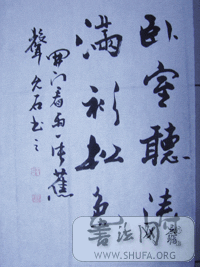 卧室聽涛
滿衫松色
開门看雨一片蕉
聲 允石书之
書法网
WWW.SHUFA.ORG